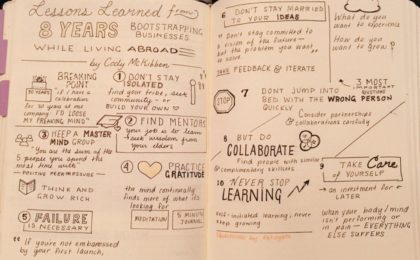 Lessons Learned from
8 YEARS BOOTSTRAPPING
BUSINESSES
WHILE LIVING ABROAD
by Cody McKibben
BREAKING
POINT
10 YEARS
if I have a
celebration
for 10 years at one
company I'D LOOSE
MY FREAKING MIND"
① DON'T STAY
ISOLATED
find your tribe, seek
community - or
BUILD YOUR OWN
② FIND MENTORS
your job is to learn
& seek wisdom from
your elders
③ KEEP A MASTER
MIND GROUP
"You are the sum of the
5 people you spend the
most time with"
- POSITIVE PEER PRESSURE
THINK AND
GROW RICH
④ PRACTICE
GRATITUDE
the mind continually
finds more of what it's
looking for
MEDITATION
5 MINUTE
JOURNAL
⑤ FAILURE
IS NECESSARY
"if you're not embarrassed
by your first launch,
6 DON'T STAY MARRIED
TO YOUR IDEAS
"Don't stay committed to
a vision of the future -
the problem you want
solve
TAKE FEEDBACK & ITERATE
What do you
want to experience
How do you
want to grow?
3 MOST
IMPORTANT
QUESTIONS
STOP
7 DONT JUMP INTO
BED WITH THE WRONG PERSON
QUICKLY
Consider partnerships
& collaborations carefully
8 BUT DO
COLLABORATE
Find people with similar &
complementary skillsets
9 TAKE Care
OF YOURSELF
an investment for
LATER
when your body/mind
isn't performing or
in pain - EVERYTHING
ELSE SUFFERS
10 NEVER STOP
LEARNING
self-initiated learning, never
stop growing